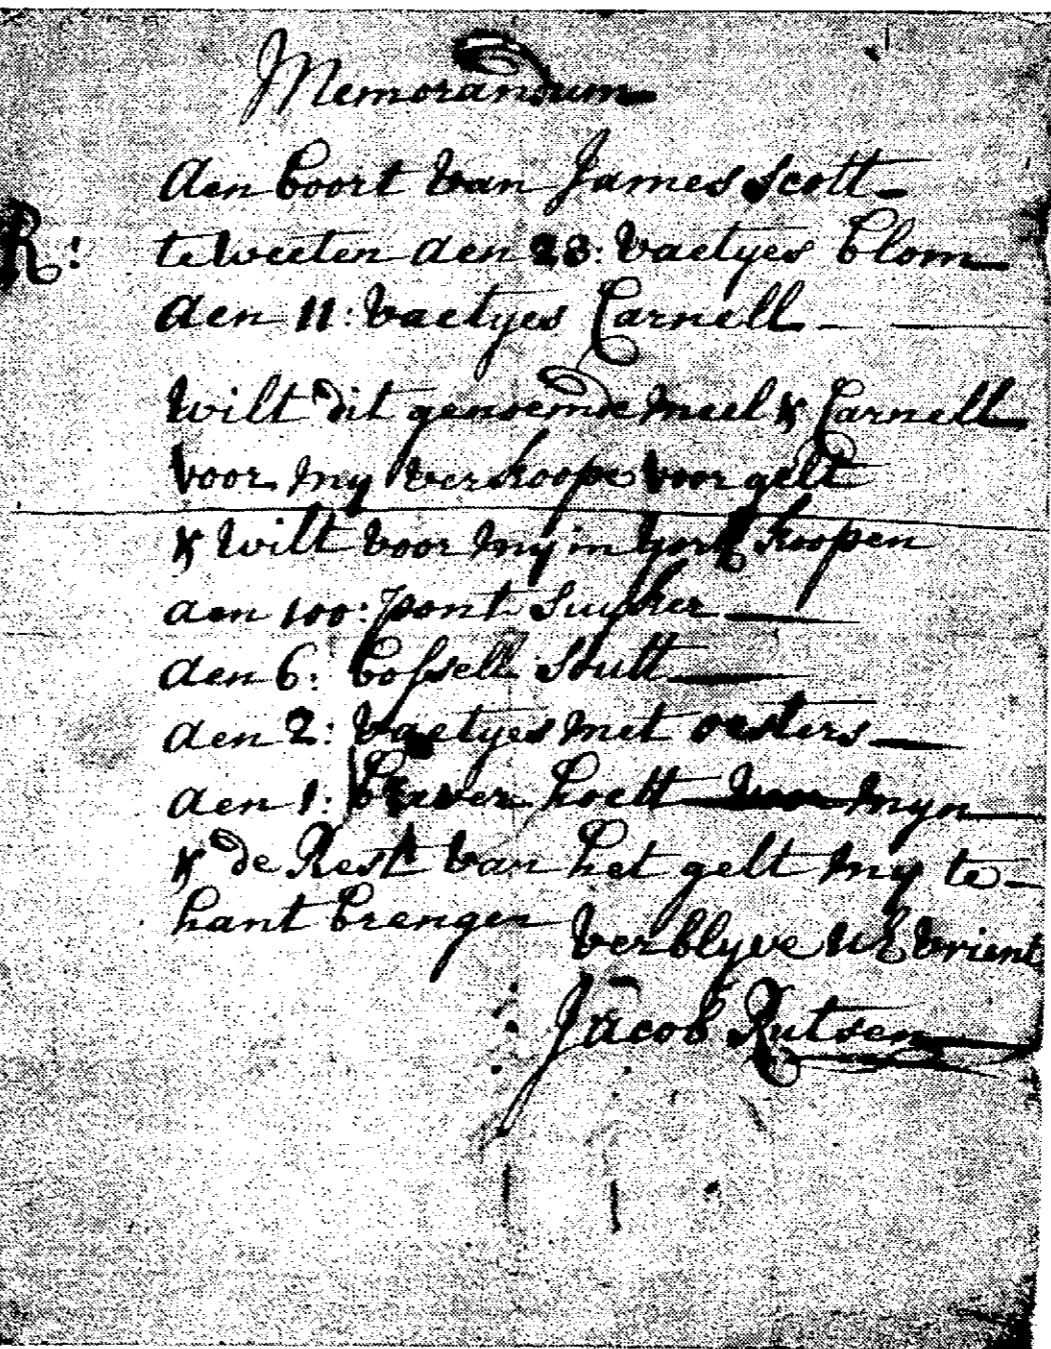 Memorandum
Aen boort van James Scott
R: te weeten aen 23: vaetyes blom
Aen 11: vaetyes Carnell
Wilt dit genoemde meel & Carnell
voor my verkoope voor gelt
& wilt voor my in york koopen
aen 100: pont Suyker
aen 6: bossell soult
aen 2: vaetyes met oesters
aen 1: bever hoett voor myn
& de Rest van het gelt my te
hant brengen
verblyve UE vrient
Jacob Rutsen